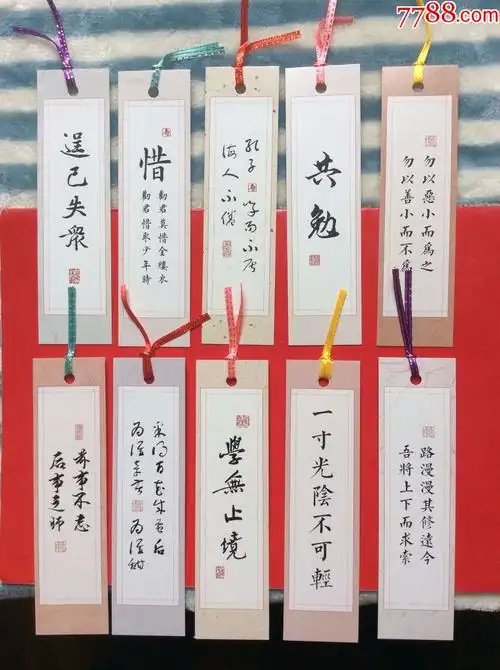 7788.com
逞己失衆
惜
勸君莫惜金縷衣
勸君惜取少年時
孔子 学而不厌
诲人不倦
共勉
勿以惡小而為之
勿以善小而不為
前事不忘
后事之师
采得百花成蜜后
为谁辛苦为谁甜
學無止境
一寸光陰不可輕
路漫漫其修遠今
吾將上下而求索